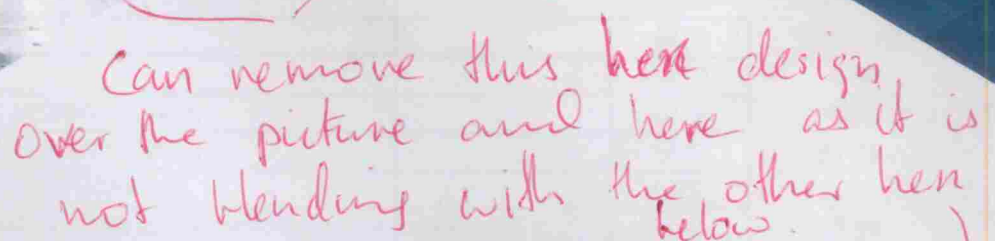 Can remove this here design,
over the picture and here as it is
not blending with the other here
below.